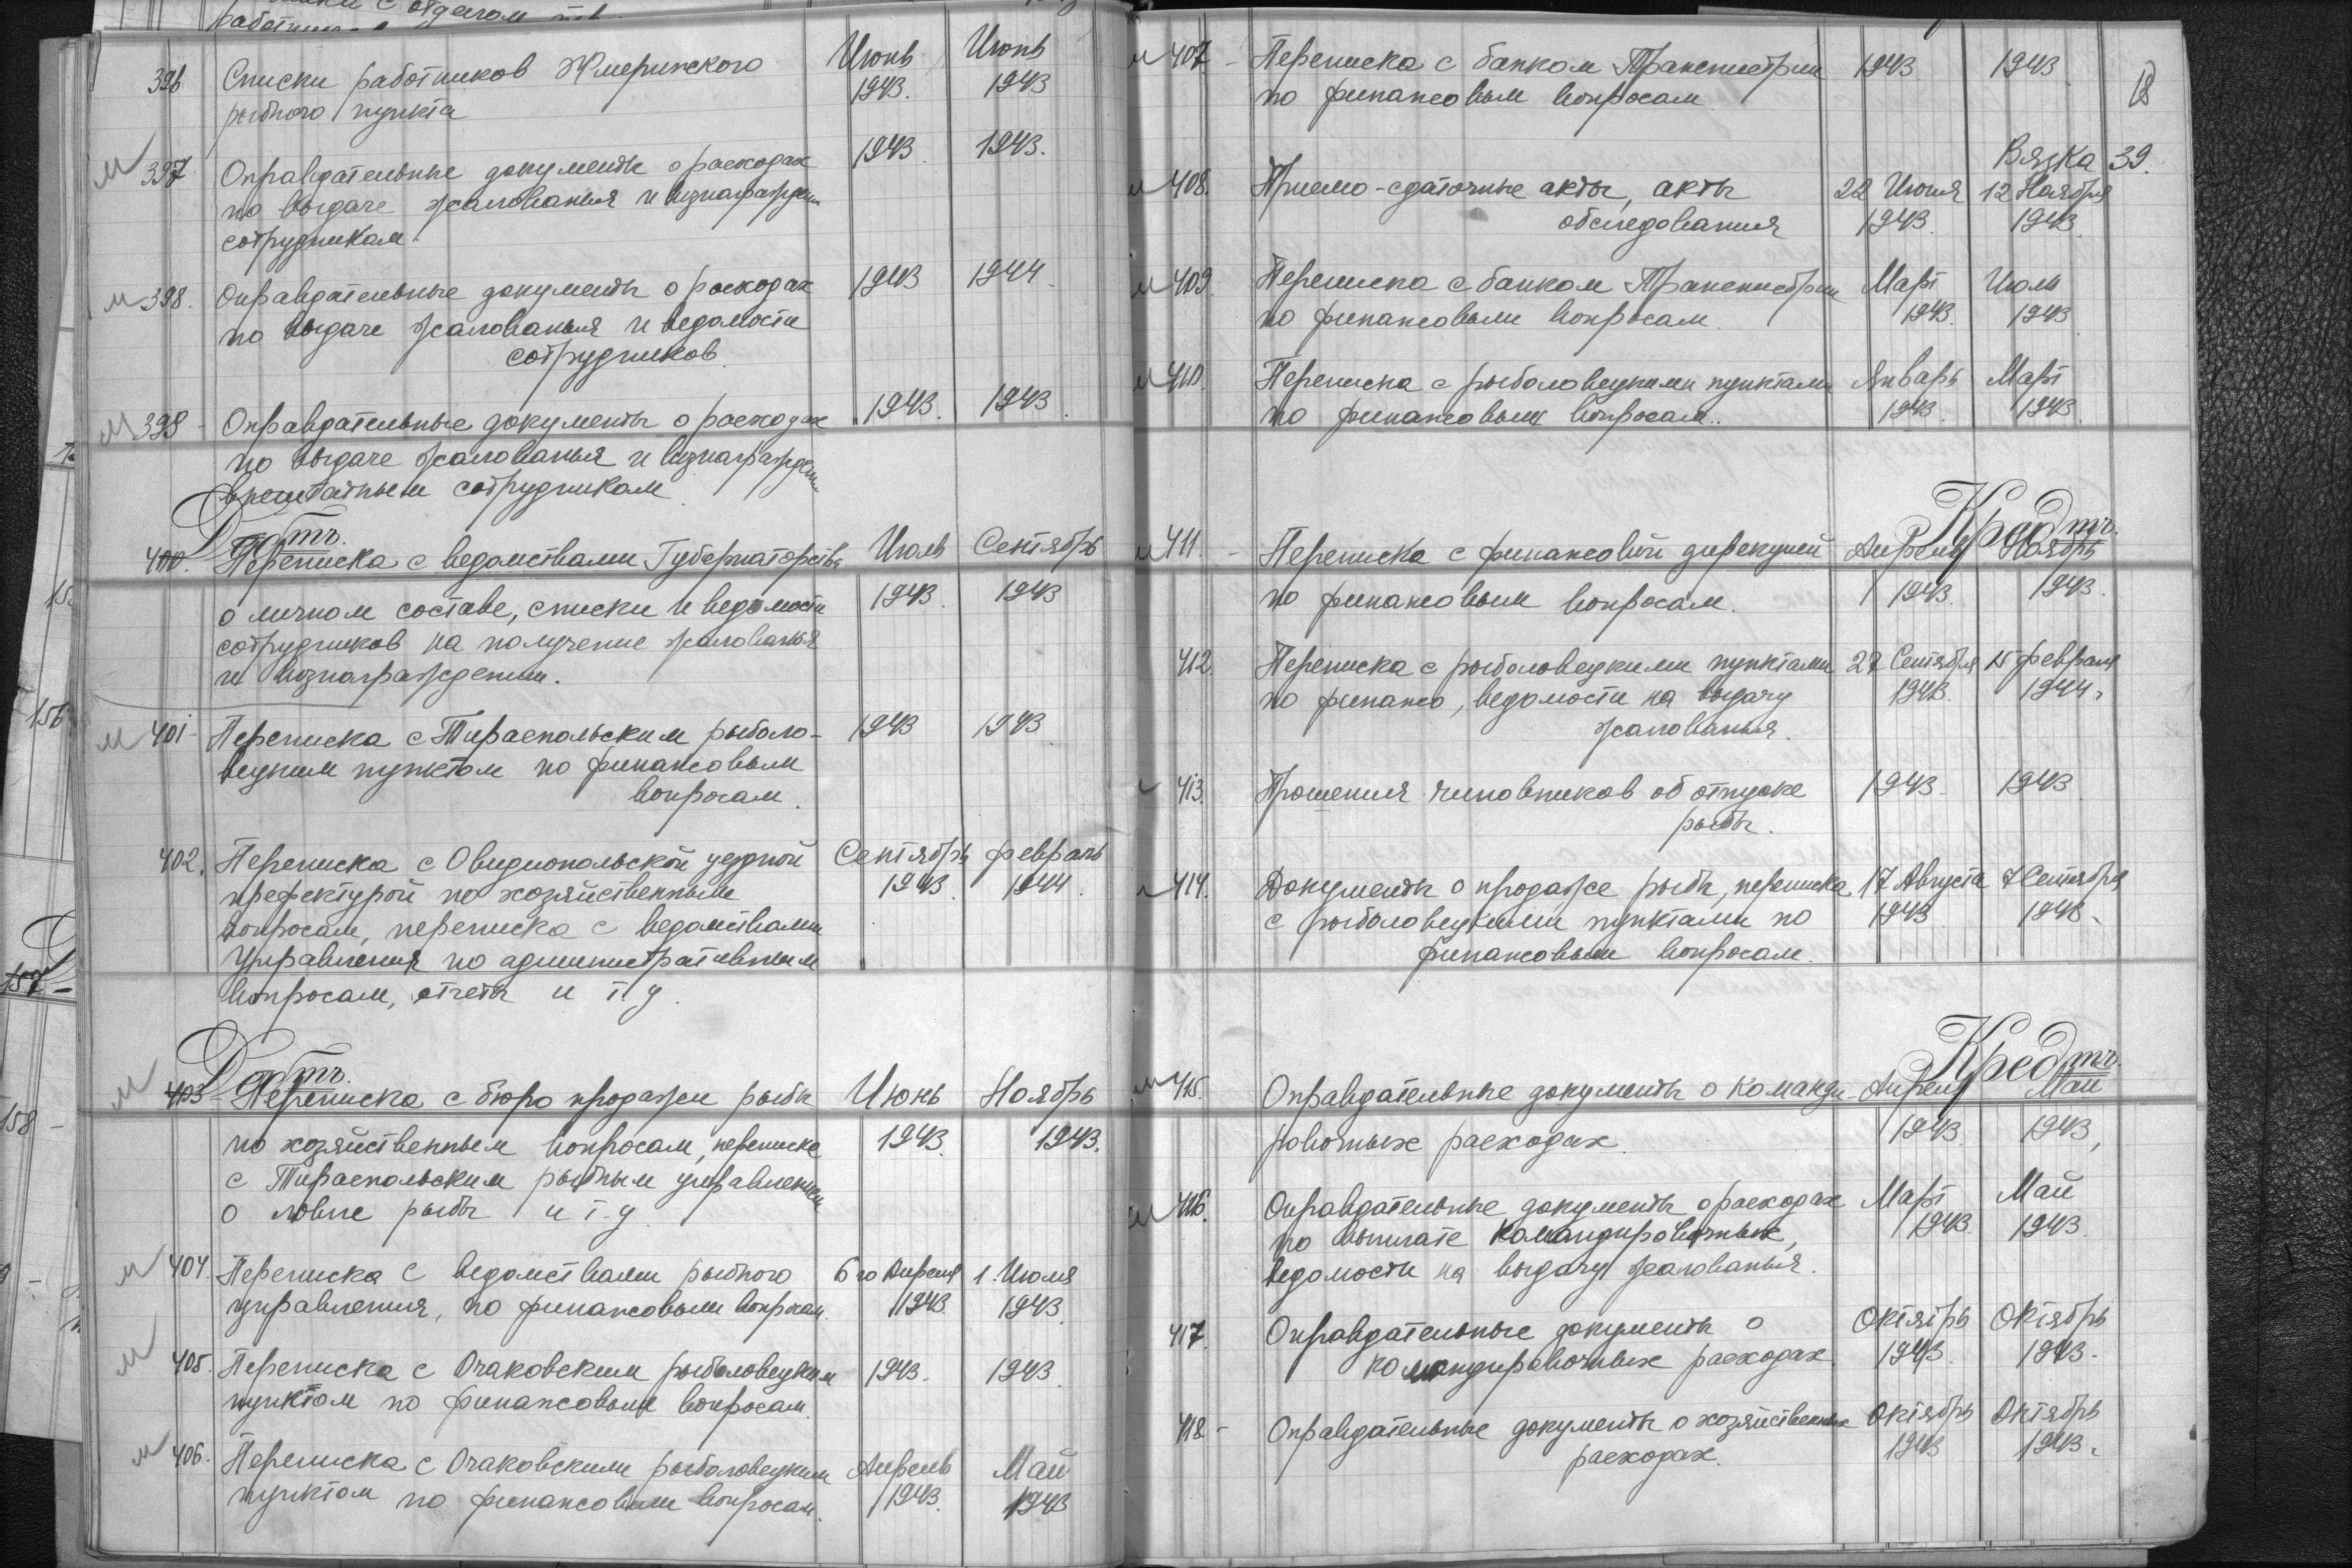 с отделом
396 Списки работников Жмеринского Июнь Июнь
рыбного пункта 1943. 1943
м 397 Оправдательные документы о расходах 1943. 1943.
по выдаче жалованья и вознагражден
сотрудникам.
м 398. Оправдательные документы о расходах 1943 1944.
по выдаче жалованья и ведомости
сотрудников.
м 399 - Оправдательные документы о расходах 1943. 1943.
по выдаче жалованья и вознагражден
внештатным сотрудникам
Дебтъ.
400. Переписка с ведомствами Губернаторства Июль Сентябрь
о личном составе, списки и ведомости 1943. 1943
сотрудников на получение жалованья
и вознаграждении.
м 401 - Переписка с Тираспольским рыболо- 1943 1943.
вецким пунктом по финансовым
вопросам.
402. Переписка с Овидиопольской уездной Сентябрь февраль
префектурой по хозяйственным 1943. 1944.
вопросам, переписка с ведомствами
Управления по административным
вопросам, отчеты и т.д.
Дебтъ.
м 403 - Переписка с бюро продажи рыбы Июнь Ноябрь
по хозяйственным вопросам, переписка 1943. 1943.
с Тираспольским рыбным управлением
о ловле рыбы и т.д.
м 404. Переписка с ведомствами рыбного 6го Апреля 1. Июля
управления, по финансовым вопросам. 1943 1943.
м 405. Переписка с Очаковским рыболовецким 1943. 1943.
пунктом по финансовым вопросам.
м 406. Переписка с Очаковским рыболовецким Апрель Май
пунктом по финансовым вопросам. 1943. 1943
156
158 -
м 407 - Переписка с банком Транснистрии 1943. 1943.
по финансовым вопросам
18
Вязка 39.
м 408. Приемо-сдаточные акты, акты 22 Июня 12 Ноября
обследования 1943. 1943.
м 409. Переписка с банком Транснистрии Март Июль
по финансовым вопросам. 1943. 1943
м 410. Переписка с рыболовецкими пунктами Январь Март
по финансовым вопросам.. 1943. 1943.
Кредтъ.
м 411 - Переписка с финансовой дирекцией Апрель Ноябрь
по финансовым вопросам. 1943. 1943.
412. Переписка с рыболовецкими пунктами 27 Сентября 15 февраля
по финансо, ведомости на выдачу 1943. 1944.
жалованья.
413. Прошения чиновников об отпуске 1943. 1943
рыбы.
м 414. Документы о продаже рыбы, переписка 17 Августа 7 Сентября
с рыболовецкими пунктами по 1943 1943.
финансовым вопросам.
Кредтъ.
м 415. Оправдательные документы о команди- Апрель Май
ровочных расходах. 1943. 1943,
м 416. Оправдательные документы о расходах Март Май
по выплате командировочных, 1943 1943.
ведомости на выдачу жалованья.
417. Оправдательные документы о Октябрь Октябрь
командировочных расходах. 1943. 1943.
418 - Оправдательные документы о хозяйственных Октябрь Октябрь
расходах. 1943 1943.